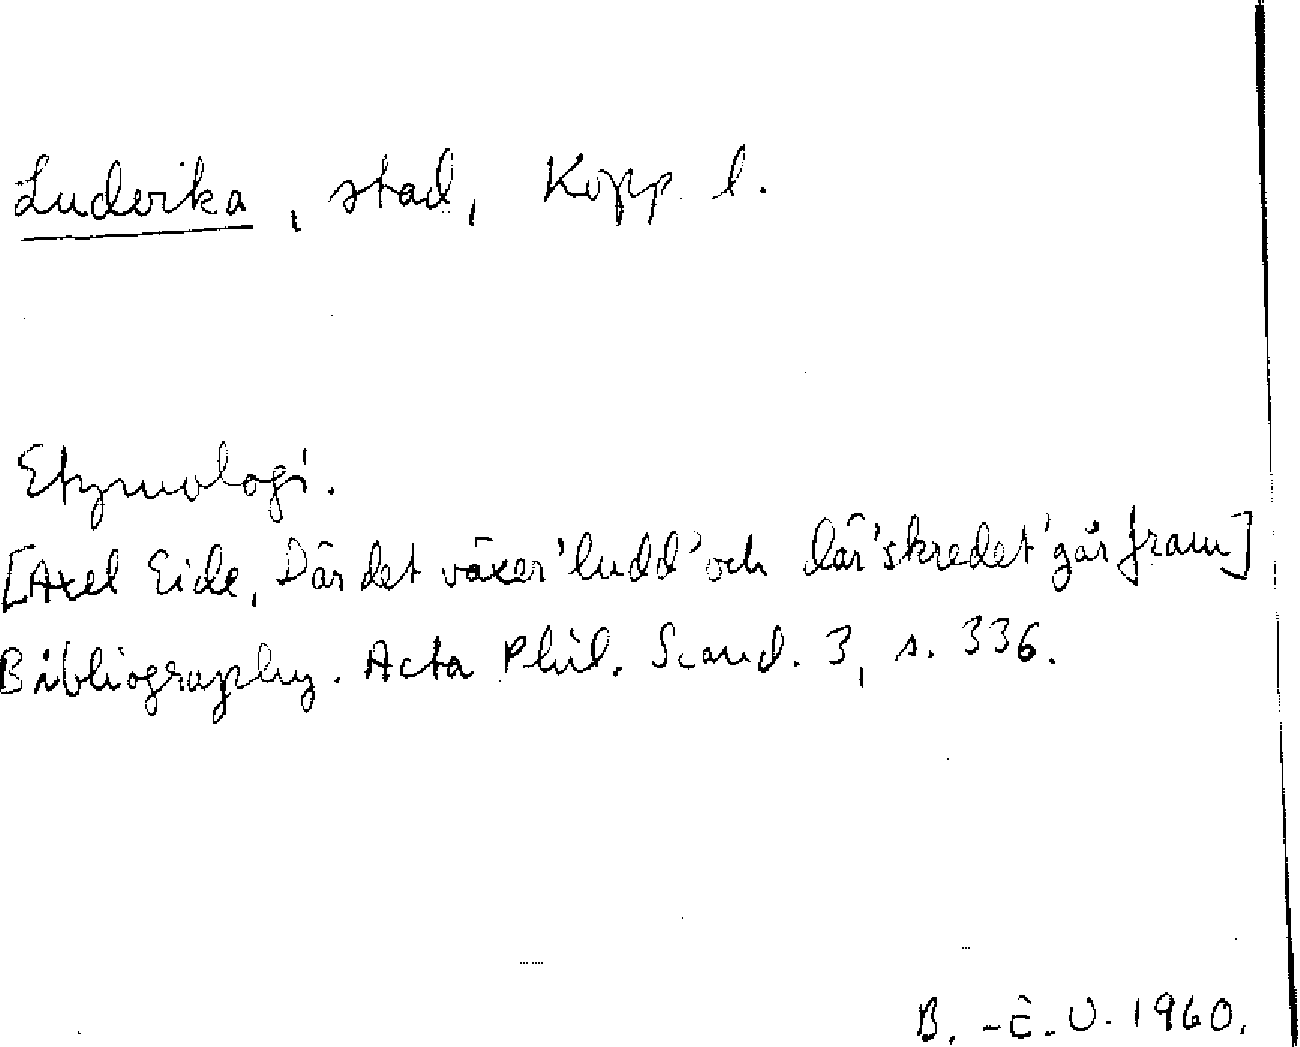 Luderika, stad, Kopp. l.
Etymologi.
[Axel Eide, Där det växer 'ludd' och där 'skredet' går fram]
Bibliography. Acta Phil. Scand. 3, s. 336.
B.-E. U. 1960.